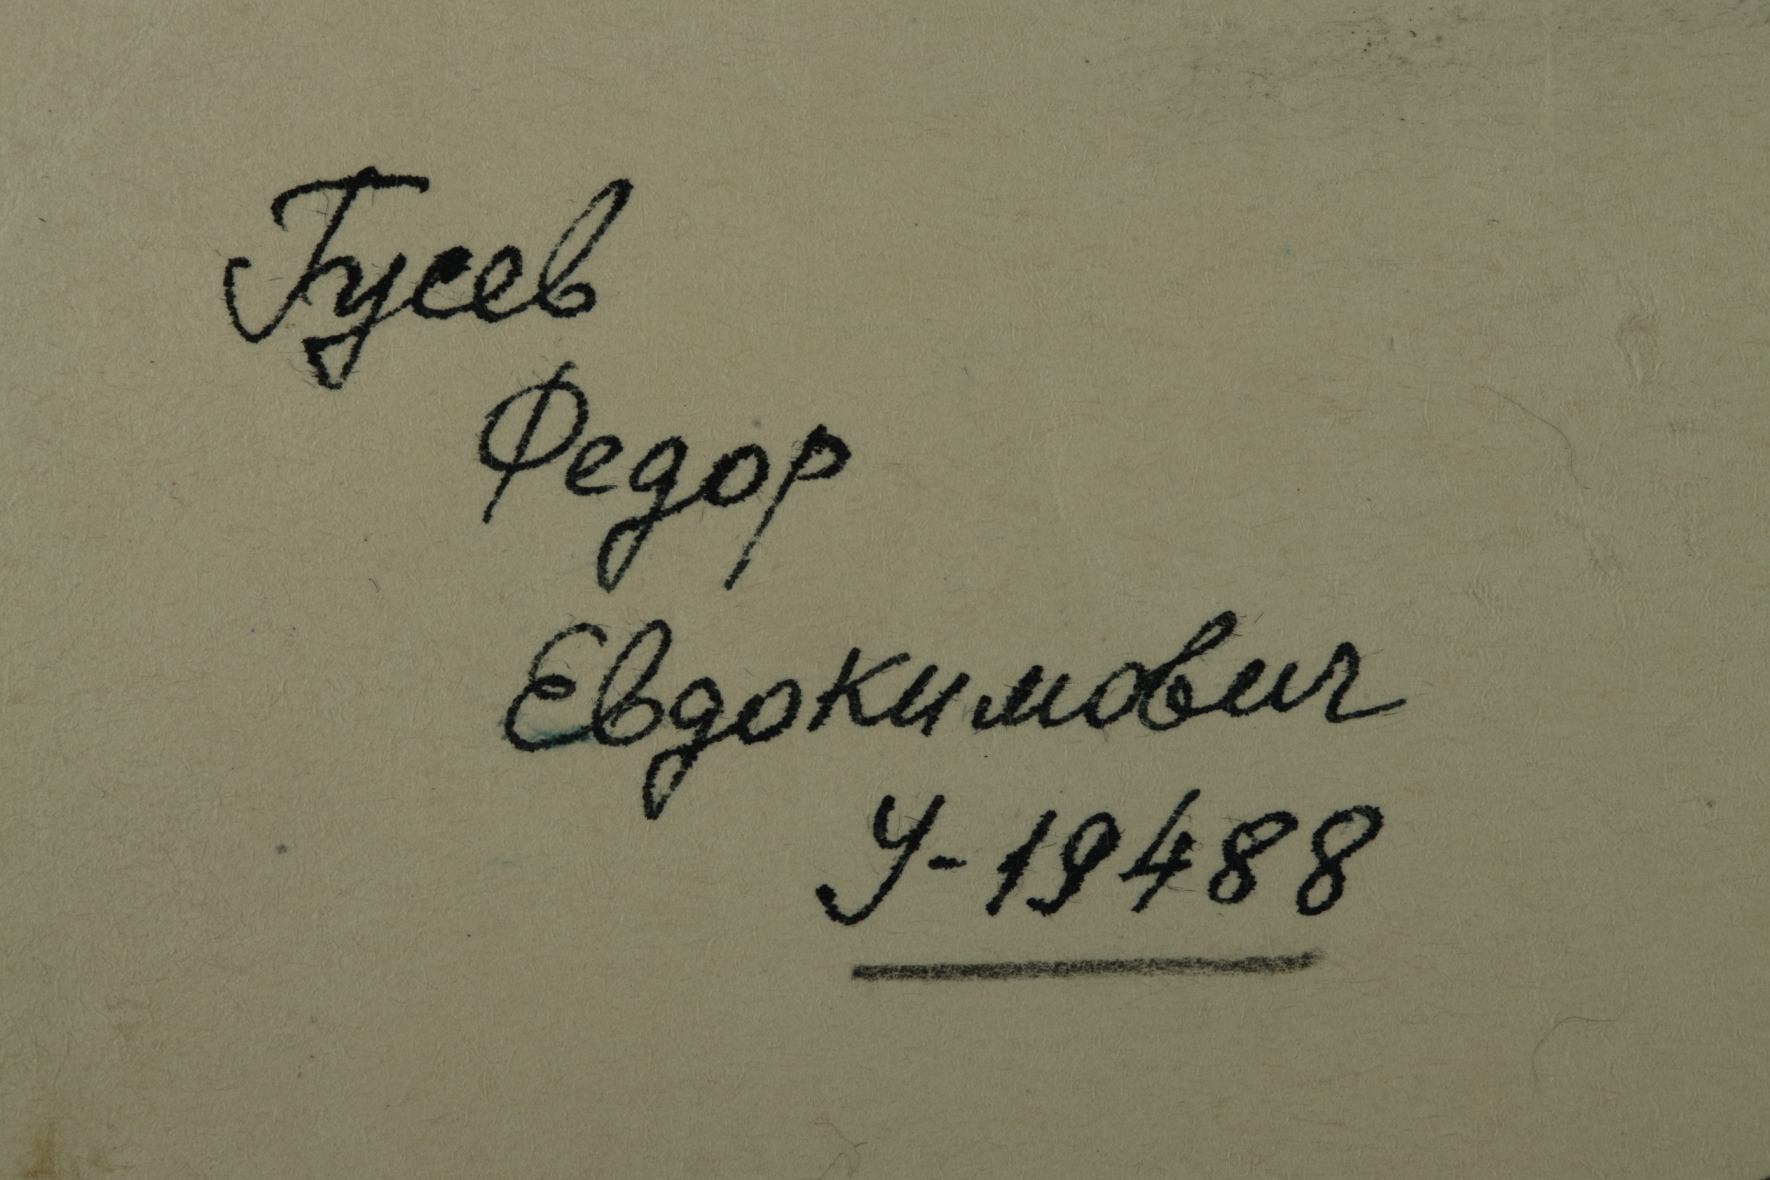 Гусев
Федор
Евдокимович
У-19488